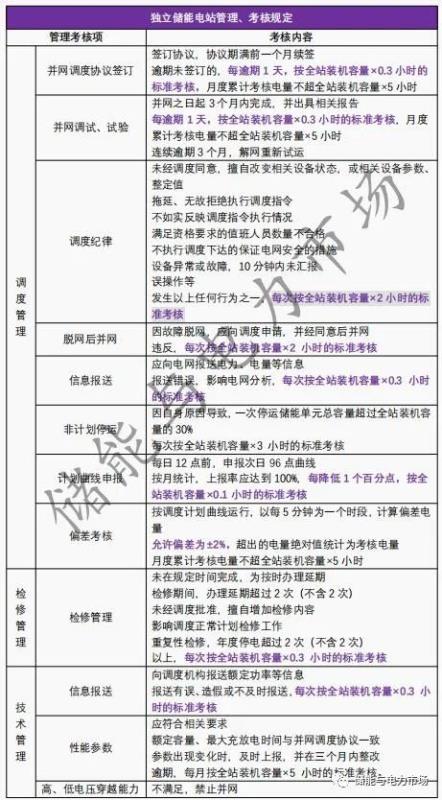 独立储能电站管理、考核规定
管理考核项
考核内容
调度管理
并网调度协议签订
签订协议，协议期满前一个月续签
逾期未签订的，每逾期 1 天，按全站装机容量×0.3 小时的
标准考核，月度累计考核电量不超全站装机容量×5 小时
并网调试、试验
并网之日起 3 个月内完成，并出具相关报告
每逾期 1 天，按全站装机容量×0.3 小时的标准考核，月度
累计考核电量不超全站装机容量×5 小时
连续逾期 3 个月，解网重新试运
调度纪律
未经调度同意，擅自改变相关设备状态，或相关设备参数、
整定值
拖延、无故拒绝执行调度指令
不如实反映调度指令执行情况
满足资格要求的值班人员数量不合格
不执行调度下达的保证电网安全的措施
设备异常或故障，10 分钟内未汇报
误操作等
发生以上任何行为之一，每次按全站装机容量×2 小时的标
准考核
脱网后并网
因故障脱网，应向调度申请，并经同意后并网
违反，每次按全站装机容量×2 小时的标准考核
信息报送
应向电网报送电力、电量等信息
报送错误，影响电网分析，每次按全站装机容量×0.3 小时
的标准考核
非计划停运
因自身原因导致，一次停运储能单元总容量超过全站装机容
量的 30%
每次按全站装机容量×3 小时的标准考核
计划曲线申报
每日 12 点前，申报次日 96 点曲线
按月统计，上报率应达到 100%，每降低 1 个百分点，按全
站装机容量×0.1 小时的标准考核
偏差考核
按调度计划曲线运行，以每 5 分钟为一个时段，计算偏差电
量
允许偏差为±2%，超出的电量绝对值统计为考核电量
月度累计考核电量不超全站装机容量×5 小时
检修管理
检修管理
未在规定时间完成，为按时办理延期
检修期间，办理延期超过 2 次（不含 2 次）
未经调度批准，擅自增加检修内容
影响调度正常计划检修工作
重复性检修，年度停电超过 2 次（不含 2 次）
以上，每次按全站装机容量×0.3 小时的标准考核
技术管理
信息报送
向调度机构报送额定功率等信息
报送有误、造假或不及时报送，每次按全站装机容量×0.3 小
时的标准考核
性能参数
应符合相关要求
额定容量、最大充放电时间与并网调度协议一致
参数出现变化时，及时上报，并在三个月内整改
逾期，每月按全站装机容量×5 小时的标准考核
高、低电压穿越能力
不满足，禁止并网
储能与电力市场
储能与电力市场